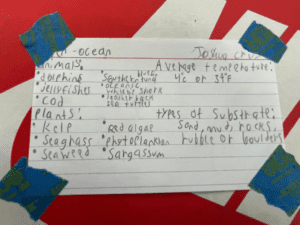 -ocean
Joshua
animals:
Average temperature:
• dolphins
• Southern bluefin tuna
4°c or 39°F
• Jellyfishes
• oceanic whitetip shark
• cod
• leatherback sea turtles
Plants:
types of Substrate:
• kelp
• Red algae
Sand, mud, rocks,
• Seagrass
• phytoplankton
rubble or boulders
• Seaweed
• Sargassum